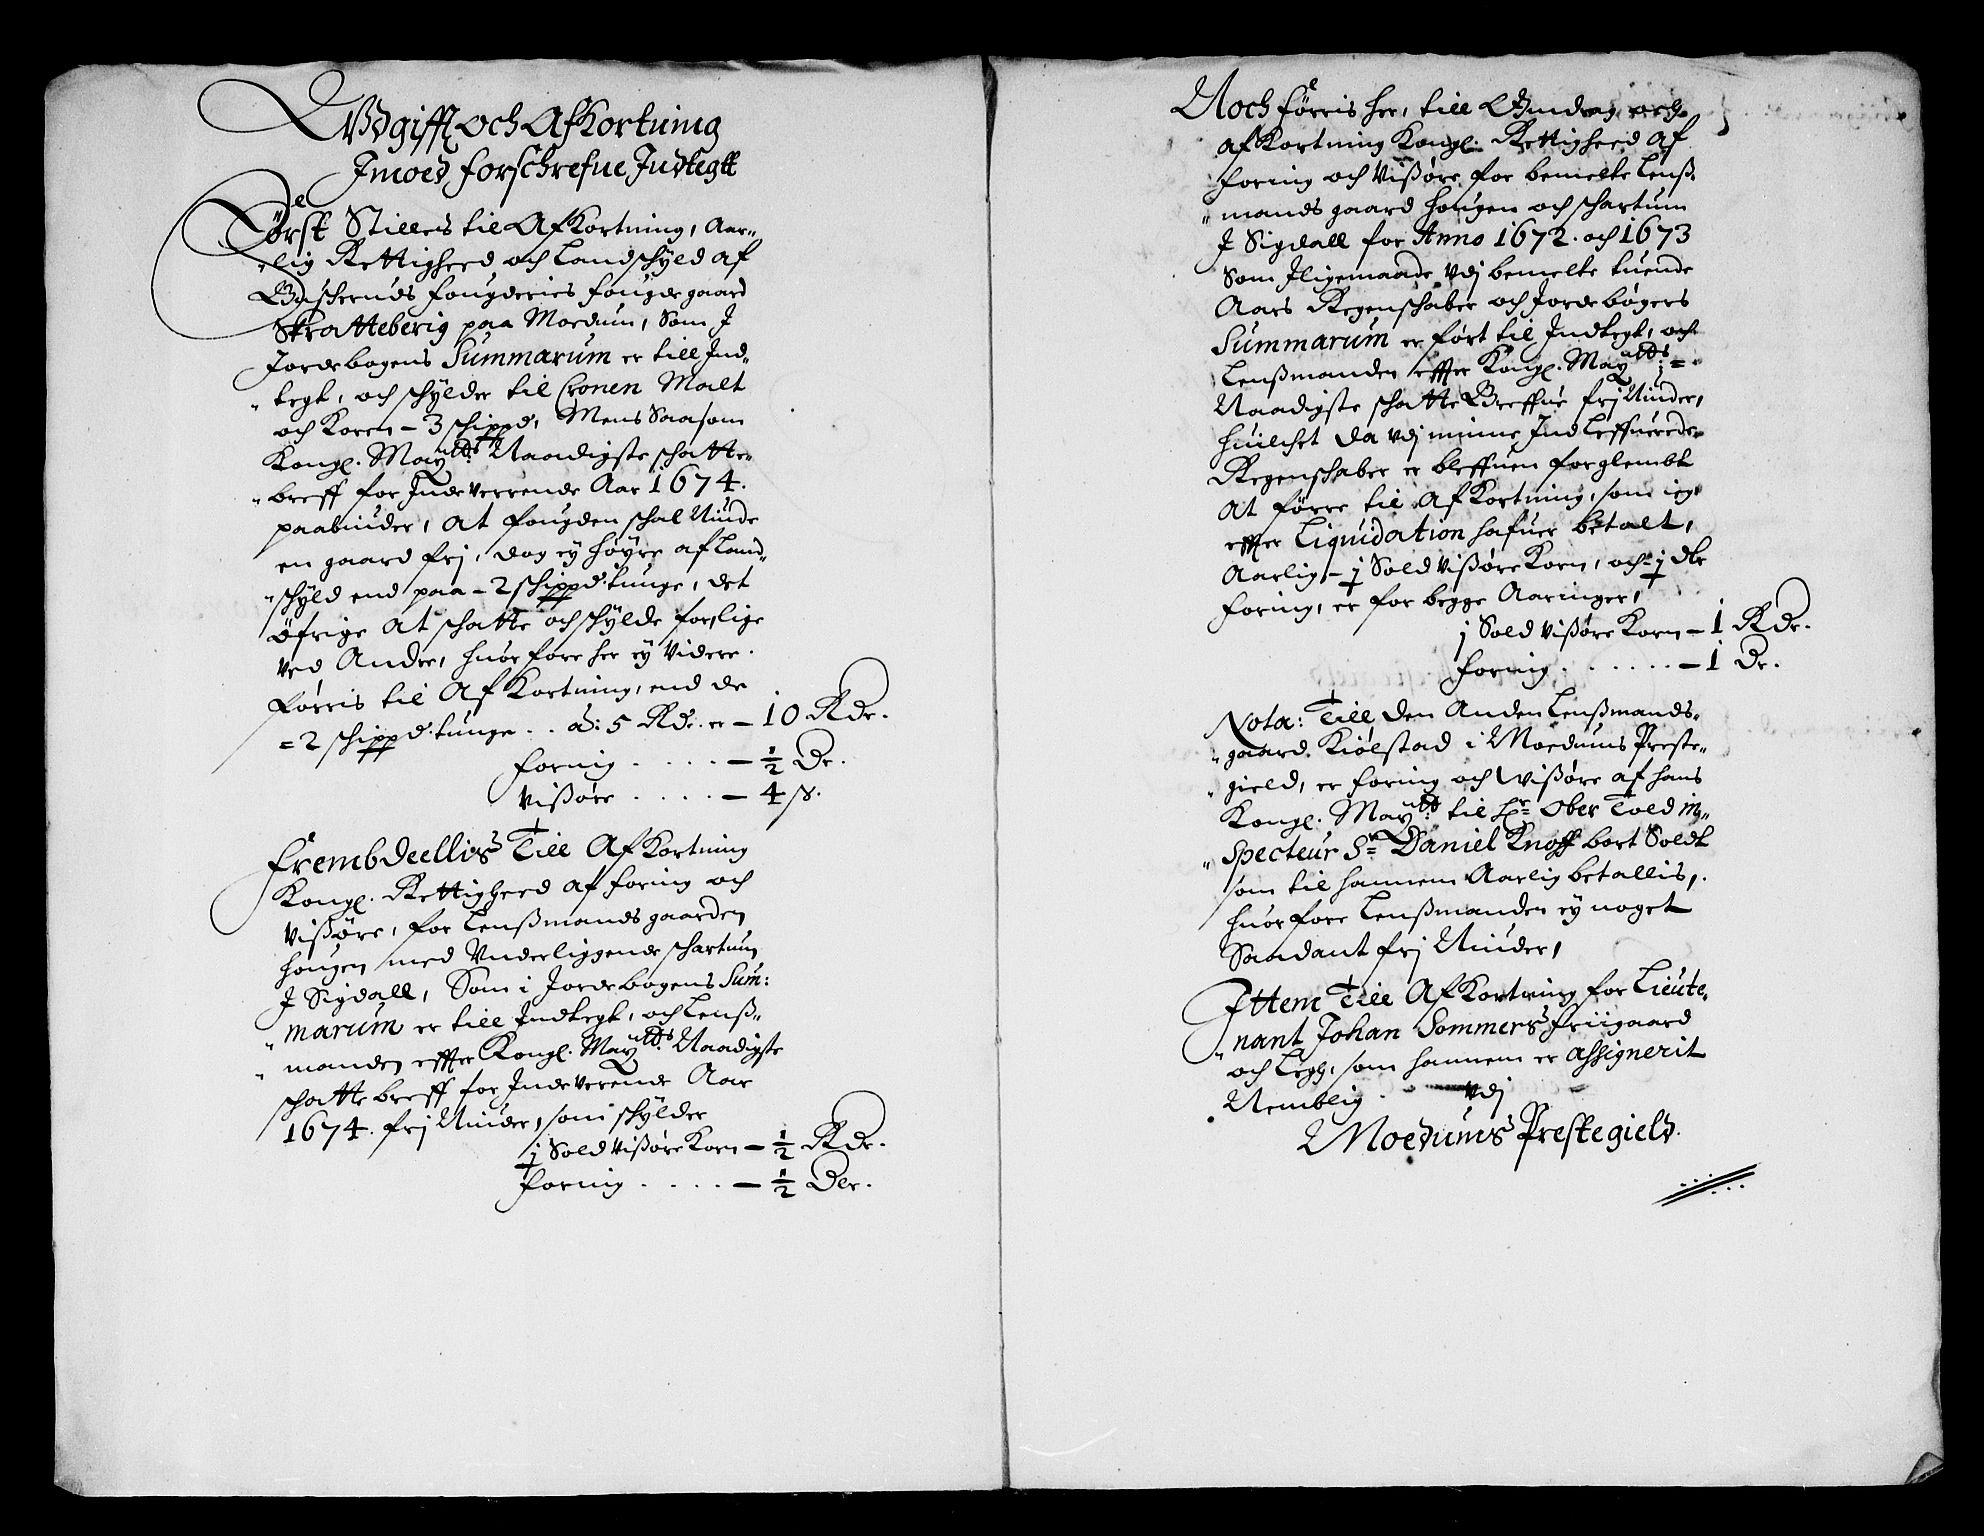 Wdgifft och Afkortning
Imoed forschrefne Indtegtt
Först Stilles til Afkortning, Aar-
lig Rettigheed och Landschyld af
Buscheruds fougderies fougdegaard
Skratteberig paa Moedum, Som J
Jordebogens Summarum er till Ind-
tegt, och schylder til Cronen Malt
och Koren - 3 schippd, Mens Saasom
Kongl. Mayttz: Naadigste schatte-
breff for Indeverrende Aar 1674.
paabiuder, at fougden schal Niude
en gaard frj, dog ej höyre af Land-
schyld end paa - 2 schippd. tunge, det
öfrige at schatte och schylde forlige
ved Andre, huorfore her ej videre
förris til Afkortning, end de
= 2 schippd. tunge . . a: 5 Rdr. er - 10 Rdr.
foring . . . . - ½ Dr.
Vissöre . . . . - 4 s.
frembdeellis Till Afkortning
Kongl. Rettigheed af foring och
Vissöre, for Lenssmandsgaarden
Hougen med Underliggende schartum
J Sigdall, Som i Jordebogens Sum:
marum er till Indtegt, och Lenss-
manden effter Kongl. Mayttz: Naadigste
schattebreff for Indeverende Aar
1674. frj Niuder, som schylder
j Sold vissöre Korn - ½ Rdr.
foring . . . . - ½ Dlr.
Noch förris her, till Undrag och
afkortning Kongl. Rettigheed af
foring och Vissöre for bemelte Lenss-
mandsgaard Hougen och schartum
J Sigdall for Anno 1672. och 1673
Som Jligemaade udj bemelte tuende
Aars Regenschaber och Jordebögers
Summarum er fört til Indtegt, och
Lenssmanden effter Kongl. Mayttz:
Naadigste schatte Breffue frj Niuder,
huilchet da udj minne Indleffuerede
Regenschaber er bleffuen forglembt
at förre til Afkortning, som ieg
effter Liquidation hafuer betalt,
Aarlig - j Sold vissöre Korn, och - j dlr
foring, er for begge Aaringer,
j Sold vissöre Korn - 1 Rdr.
foring . . . . . . - 1 Dr.
Nota: Till den Anden Lenssmands-
gaard Kiölstad i Moedums Preste-
gield, er foring och Wissöre af hans
Kongl. Maytt: til Hr Ober Told in-
specteur Sr Daniel Knoff bort Soldt
som til hannem Aarlig betallis,
huorfore Lenssmanden ej noget
Saadant frj Niuder,
Ittem Till Afkortning for Lieute-
nant Johan Sommers friigaard
och Legh, som hannem er assignerit
Nemblig. udj
Moedums Prestegield.